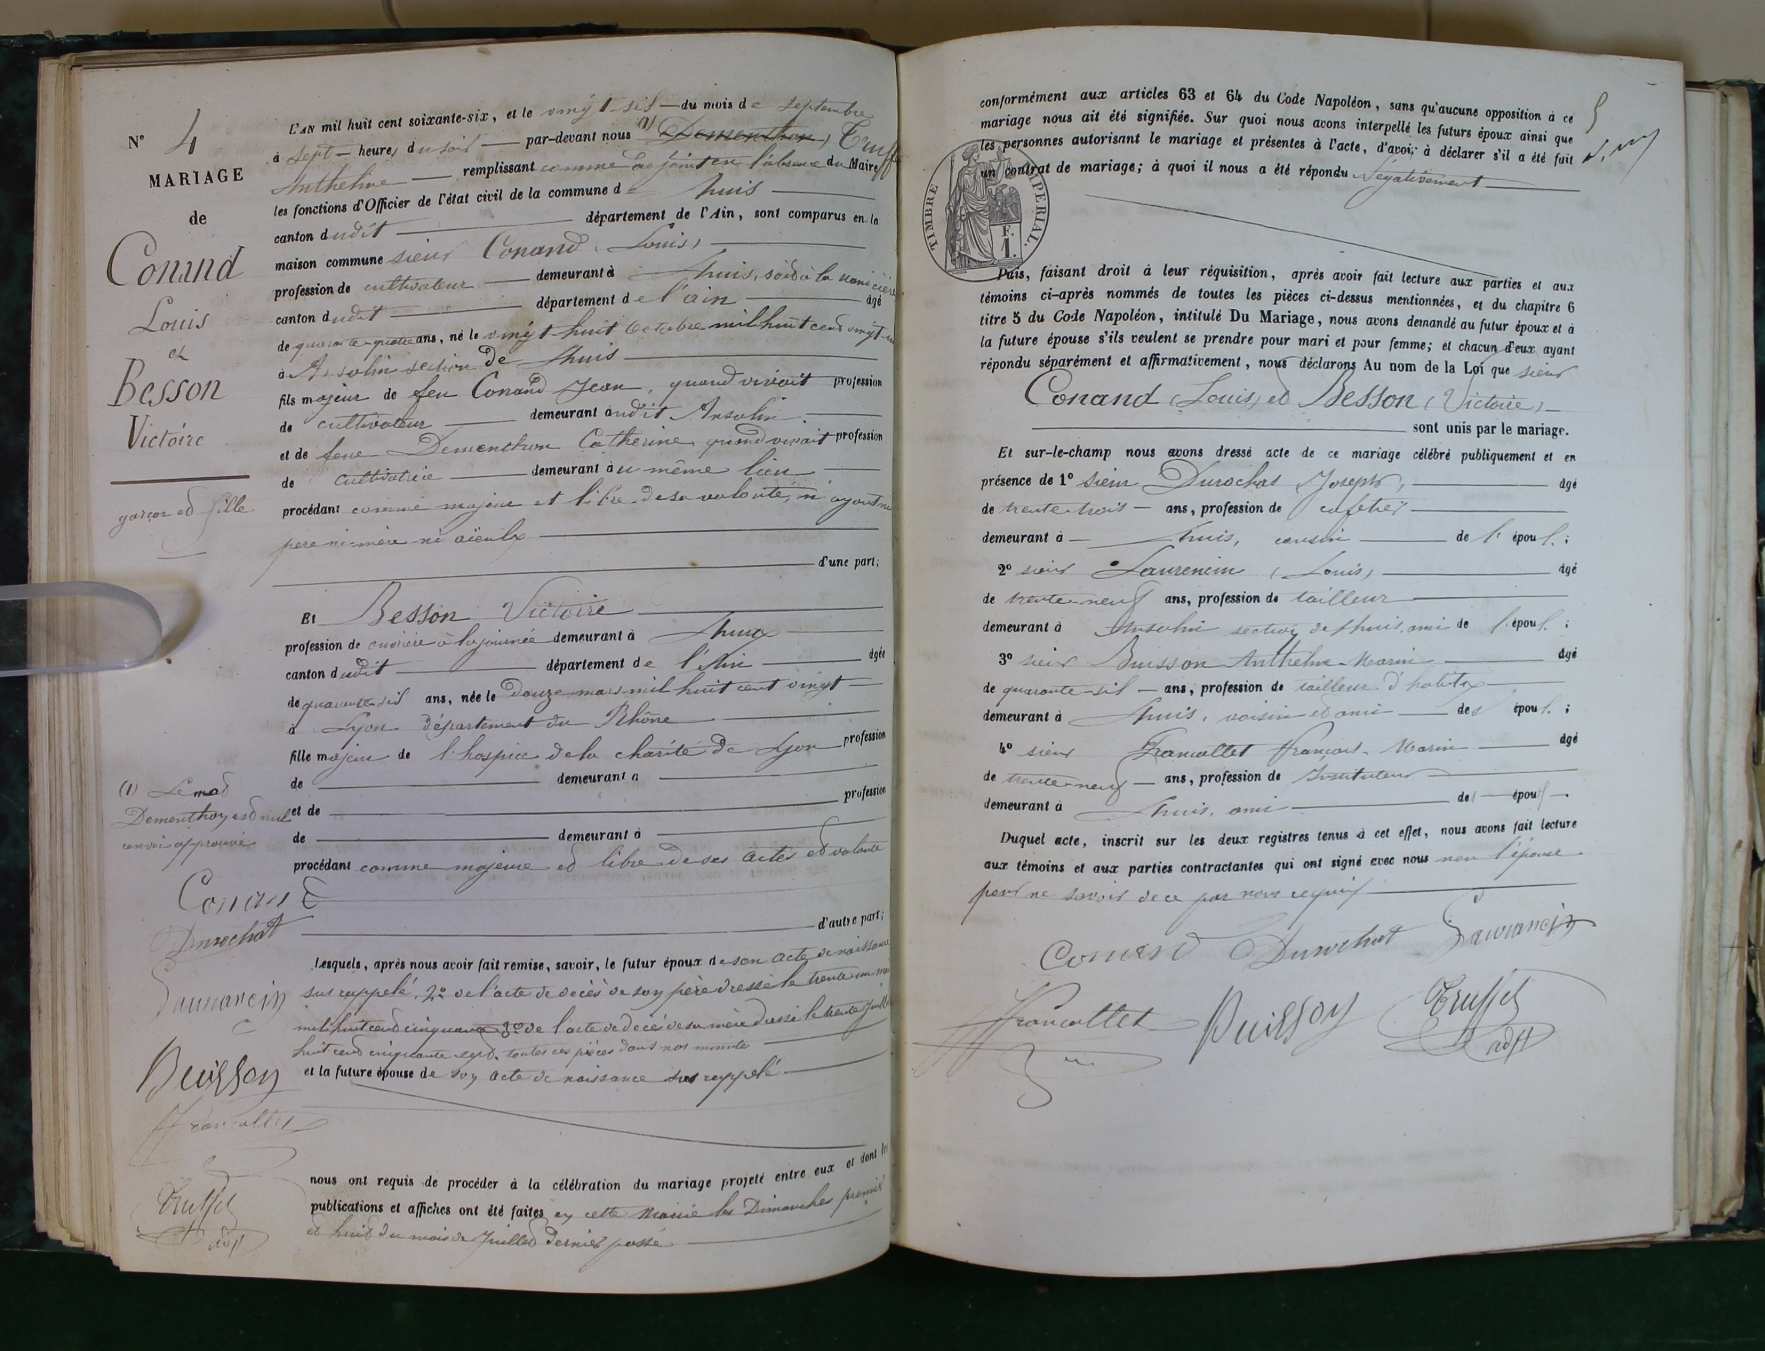 N° 4
MARIAGE
de
Conand
Louis
et
Besson
Victoire
garçon et fille
(1) Le mot
Dementhon est nul
renvoi approuvé
Conand
Durochat
Laurancin
Buisson
Francallet
Truffet
adjt
L'AN mil huit cent soixante-six, et le vingt-six du mois de septembre
à sept heures du soir par-devant nous (1) Dementhon, Truffet
Anthelme remplissant comme adjoint en l'absence du Maire
les fonctions d'Officier de l'état civil de la commune de Lhuis
canton dudit département de l'Ain, sont comparus en la
maison commune sieur Conand (Louis)
profession de cultivateur demeurant à Lhuis,
canton dudit département de l'ain âgé
de quarante-quatre ans, né le vingt huit octobre mil huit cent vingt
à Ansolin section de Lhuis
fils majeur de feu Conand Jean, quand vivait profession
de cultivateur demeurant audit Ansolin
et de feue Dementhon Catherine quand vivait profession
de cultivatrice demeurant au même lieu
procédant comme majeur et libre de sa volonté, n'ayant ni
père ni mère ni aïeulx
d'une part;
Et Besson Victoire
profession de ouvrière à la journée demeurant à Lhuis
canton dudit département de l'Ain âgée
de quarante-six ans, née le douze mars mil huit cent vingt
à Lyon département du Rhône
fille majeure de l'hospice de la charité de Lyon profession
de demeurant à
et de profession
de demeurant à
procédant comme majeure et libre de ses actes et volonté
d'autre part;
Lesquels, après nous avoir fait remise, savoir, le futur époux de son acte de naissance
sus rappelé, 2° de l'acte de décès de son père dressé le trente un
mil huit cent cinquante 3° de l'acte de décès de sa mère dressé le trente juillet
huit cent cinquante sept. toutes ces pièces dans nos minutes
et la future épouse de son acte de naissance sus rappelé
nous ont requis de procéder à la célébration du mariage projeté entre eux et dont les
publications et affiches ont été faites en cette Mairie les Dimanches premier
et huit du mois de Juillet dernier passé
conformément aux articles 63 et 64 du Code Napoléon, sans qu'aucune opposition à ce
mariage nous ait été signifiée. Sur quoi nous avons interpellé les futurs époux ainsi que
les personnes autorisant le mariage et présentes à l'acte, d'avoir à déclarer s'il a été fait
un contrat de mariage; à quoi il nous a été répondu Négativement
TIMBRE IMPERIAL.
F.
1.
Puis, faisant droit à leur réquisition, après avoir fait lecture aux parties et aux
témoins ci-après nommés de toutes les pièces ci-dessus mentionnées, et du chapitre 6
titre 5 du Code Napoléon, intitulé Du Mariage, nous avons demandé au futur époux et à
la future épouse s'ils veulent se prendre pour mari et pour femme; et chacun d'eux ayant
répondu séparément et affirmativement, nous déclarons Au nom de la Loi que sieur
Conand (Louis) et Besson (Victoire)
sont unis par le mariage.
Et sur-le-champ nous avons dressé acte de ce mariage célébré publiquement et en
présence de 1° sieur Durochat Joseph, âgé
de trente-trois ans, profession de cafetier
demeurant à Lhuis, cousin de l'époux;
2° sieur Laurencin (Louis) âgé
de trente-neuf ans, profession de tailleur
demeurant à Ansolin section de Lhuis ami de l'époux;
3° sieur Buisson Anthelme Marin âgé
de quarante-six ans, profession de tailleur d'habits
demeurant à Lhuis, voisin et ami des époux;
4° sieur Francallet François Marin âgé
de trente-neuf ans, profession de Instituteur
demeurant à Lhuis, ami de époux.
Duquel acte, inscrit sur les deux registres tenus à cet effet, nous avons fait lecture
aux témoins et aux parties contractantes qui ont signé avec nous non l'épouse
pour ne savoir de ce par nous requis
Conand Durochat Laurancin
Francallet Buisson Truffet
adjt